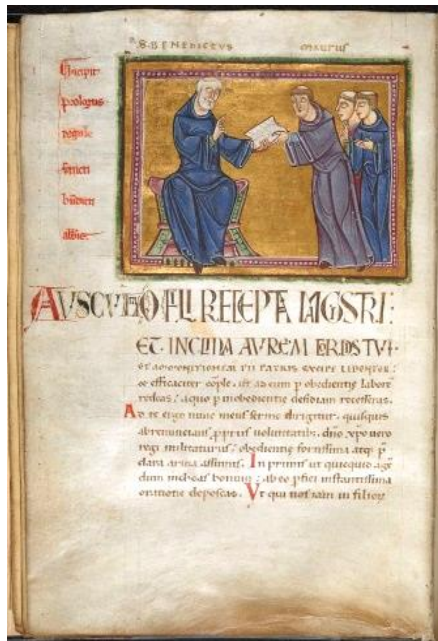 S. BENEDICTUS MAURUS
Incipit
prologus
regule
sancti
AUSCULTA O FILI PRECEPTA MAGISTRI:
ET INCLINA AUREM CORDIS TUI.
et admonitionem pii patris excipe libenter:
& efficaciter cople, ut ad eum p obedientie laborē
redeas: a quo p inobedientie desidiam recesseras.
Ad te ergo nunc meus sermo dirigitur, quisquis
abrenuntians propriis voluntatibus, dno xpo vero
regi militaturus: obedientie fortissima atq; p
clara arma assumis. In primis ut quicquid agen
dum inchoas bonum: ab eo pfici instantissima
oratione deposcas. Ut qui nos iam in filioꝝ